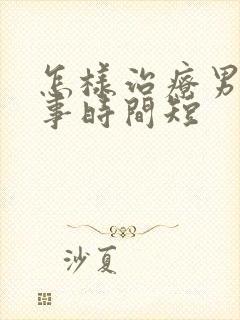 怎樣治療男
事時間短
沙夏